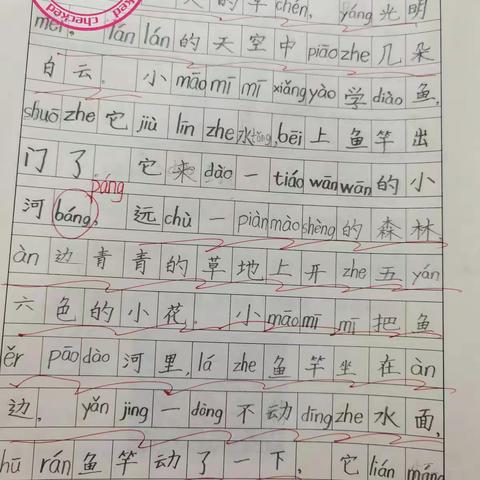 的早chén，yáng光明
mèi，lán lán的天空中piāo zhe几朵
白云。小māo mī mī xiǎng yào学diào鱼，
shuō zhe它jiù līn zhe水tǒng，bēi上鱼竿出
门了 它来dào一tiáo wān wān的小
páng
河báng，远chù一piàn mào shèng的森林，
àn边青青的草地上开zhe五yán
六色的小花。小māo mī mī把鱼
ěr pāo dào河里，lá zhe鱼竿坐在àn
边，yǎn jing一dòng不动dīng zhe水面，
hū rán鱼竿动了一下，它lián máng
checked